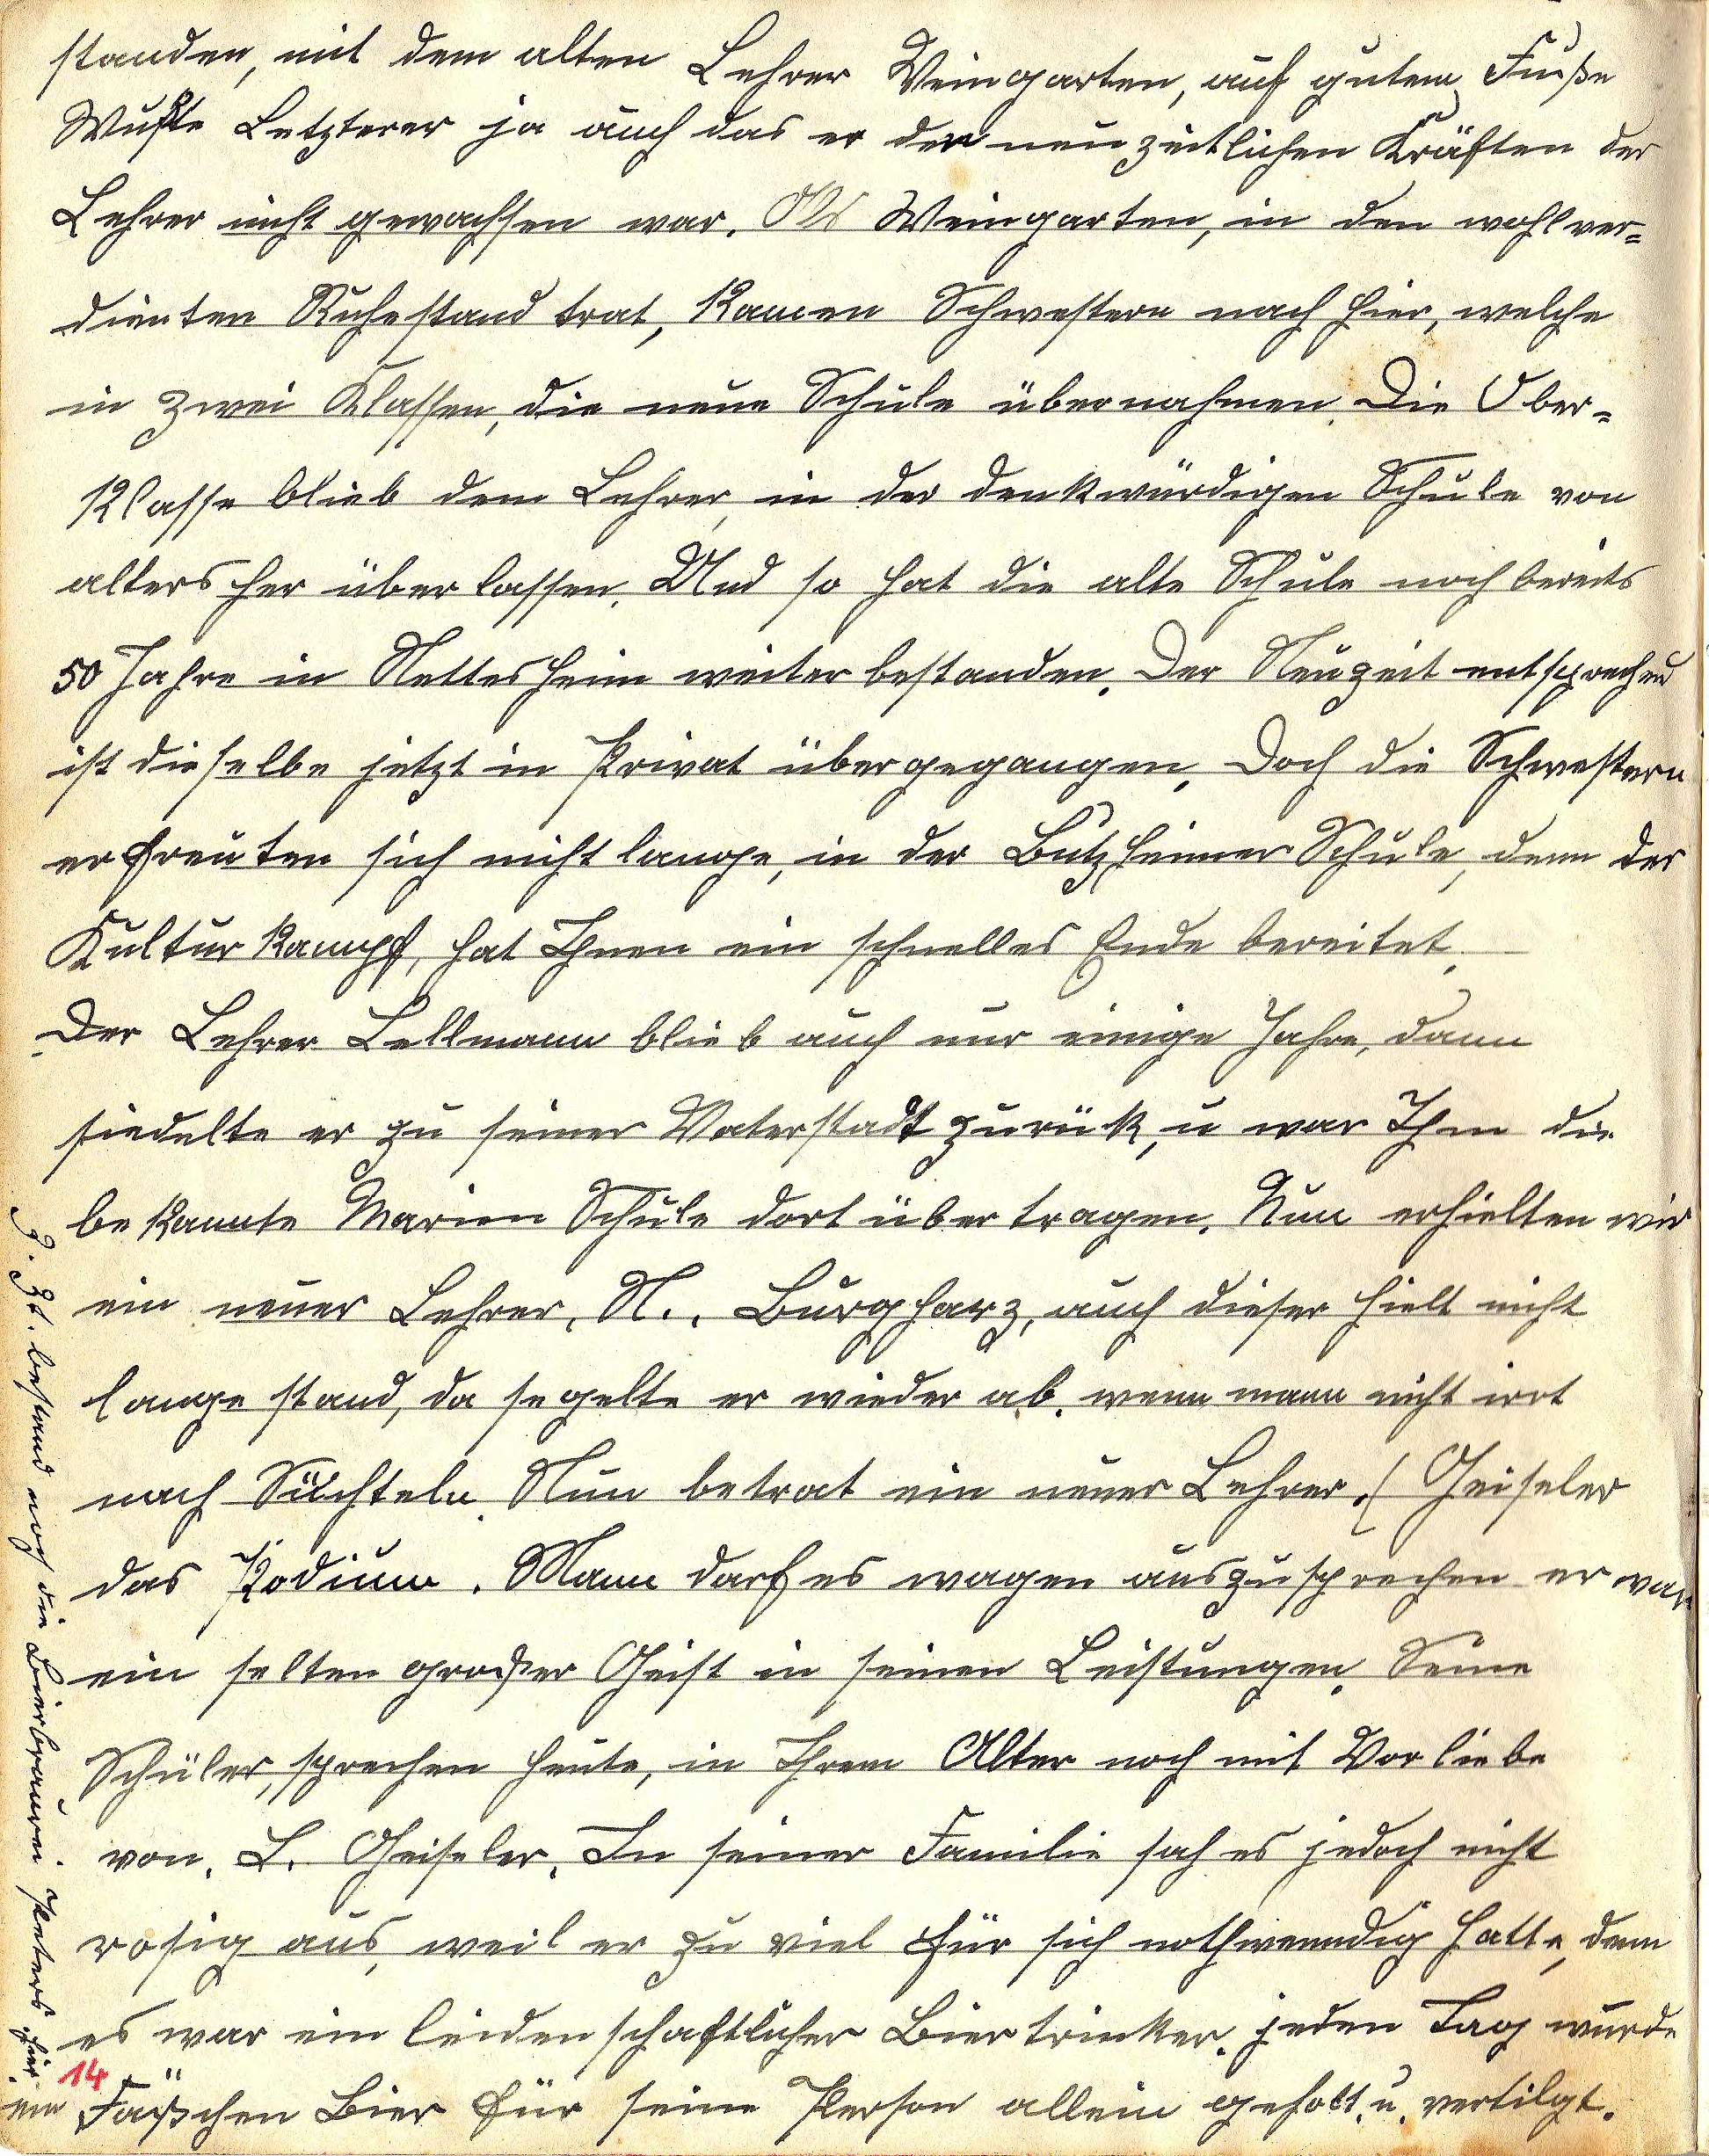 standen, mit dem alten Lehrer Weingarten, auf gutem Fuße
Wußte Letzterer ja auch das er den neuzeitlichen Kräften der
Lehrer nicht gewachsen war. Als Weingarten, in den wohlver=
dienten Ruhestand trat, kamen Schwestern nach hier, welche
in zwei Klassen, die neue Schule übernahmen. Die Ober=
klasse blieb dem Lehrer, in der denkwürdigen Schule von
alters her überlassen. Und so hat die alte Schule noch bereits
50 Jahre in Nettesheim weiter bestanden. Der Neuzeit entsprechend
ist dieselbe jetzt in Privat übergegangen. Doch die Schwestern
erfreuten sich nicht lange, in der Butzheimer Schule, denn der
Kulturkampf, hat Ihnen ein schnelles Ende bereitet.
Der Lehrer Lellmann blieb auch nur einige Jahre, dann
siedelte er zu seiner Vaterstadt zurük, u war Ihm die
bekannte Marien Schule dort übertragen. Nun erhielten wir
ein neuer Lehrer, N.. Burgharz, auch dieser hielt nicht
lange stand, da segelte er wieder ab. wenn mann nicht irrt
nach Süchteln. Nun betrat ein neuer Lehrer. ( Geiseler
das Podium. Mann darf es wagen auszusprechen er war
ein selten großer Geist in seinen Leistungen. Seine
Schüler, sprechen heute, in Ihrem Alter noch mit Vorliebe
von. L. Geiseler. In seiner Familie sah es jedoch nicht
rosig aus, weil er zu viel für sich nothwenndig hatte, denn
es war ein leidenschaftlicher Biertrinker. jeden Tag wurde
ein Fäßchen Bier für seine Person allein geholt. u. vertilgt.
Z. Zt. bestand noch die Bierbrauerei Peters hier.
14